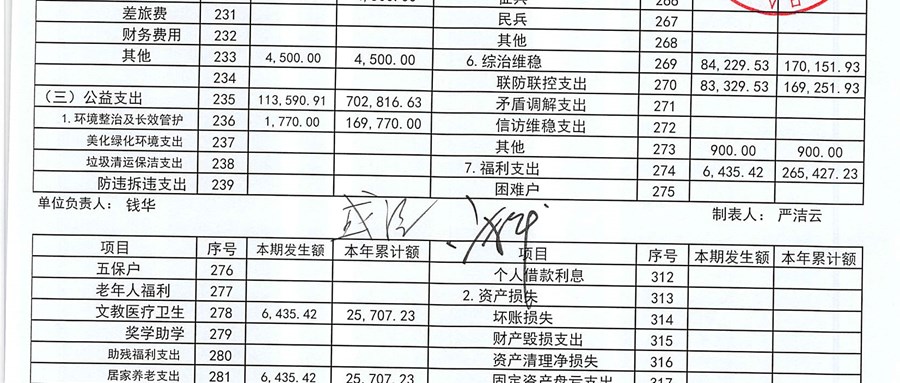 差旅费 231 民兵 267
财务费用 232 其他 268
其他 233 4,500.00 4,500.00 6.综治维稳 269 84,229.53 170,151.93
234 联防联控支出 270 83,329.53 169,251.93
(三)公益支出 235 113,590.91 702,816.63 矛盾调解支出 271
1.环境整治及长效管护 236 1,770.00 169,770.00 信访维稳支出 272
美化绿化环境支出 237 其他 273 900.00 900.00
垃圾清运保洁支出 238 7.福利支出 274 6,435.42 265,427.23
防违拆违支出 239 困难户 275
单位负责人: 钱华 制表人: 严洁云
项目 序号 本期发生额 本年累计额 项目 序号 本期发生额 本年累计额
五保户 276 个人借款利息 312
老年人福利 277 2.资产损失 313
文教医疗卫生 278 6,435.42 25,707.23 坏账损失 314
奖学助学 279 财产毁损支出 315
助残福利支出 280 资产清理净损失 316
居家养老支出 281 6,435.42 25,707.23 固定资产盘亏支出 317